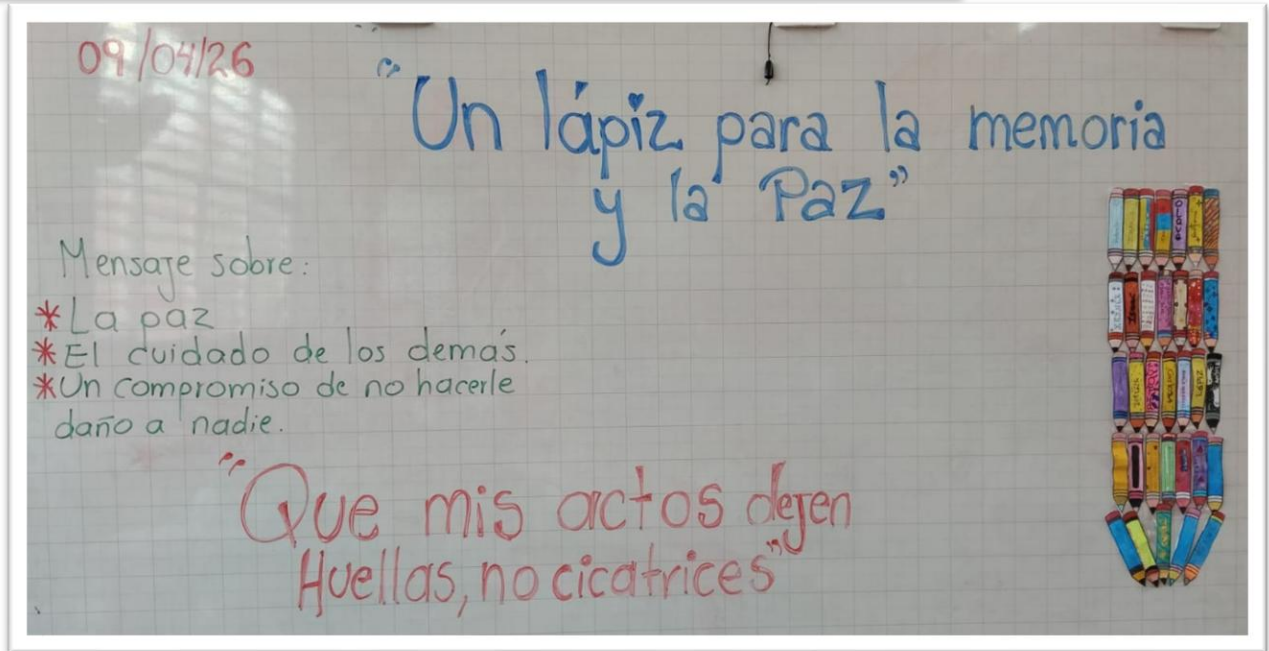 09/04/26
"Un lápiz para la memoria
y la Paz"
Mensaje sobre:
*La paz
*El cuidado de los demás.
*Un compromiso de no hacerle
daño a nadie.
"Que mis actos dejen
Huellas, no cicatrices"